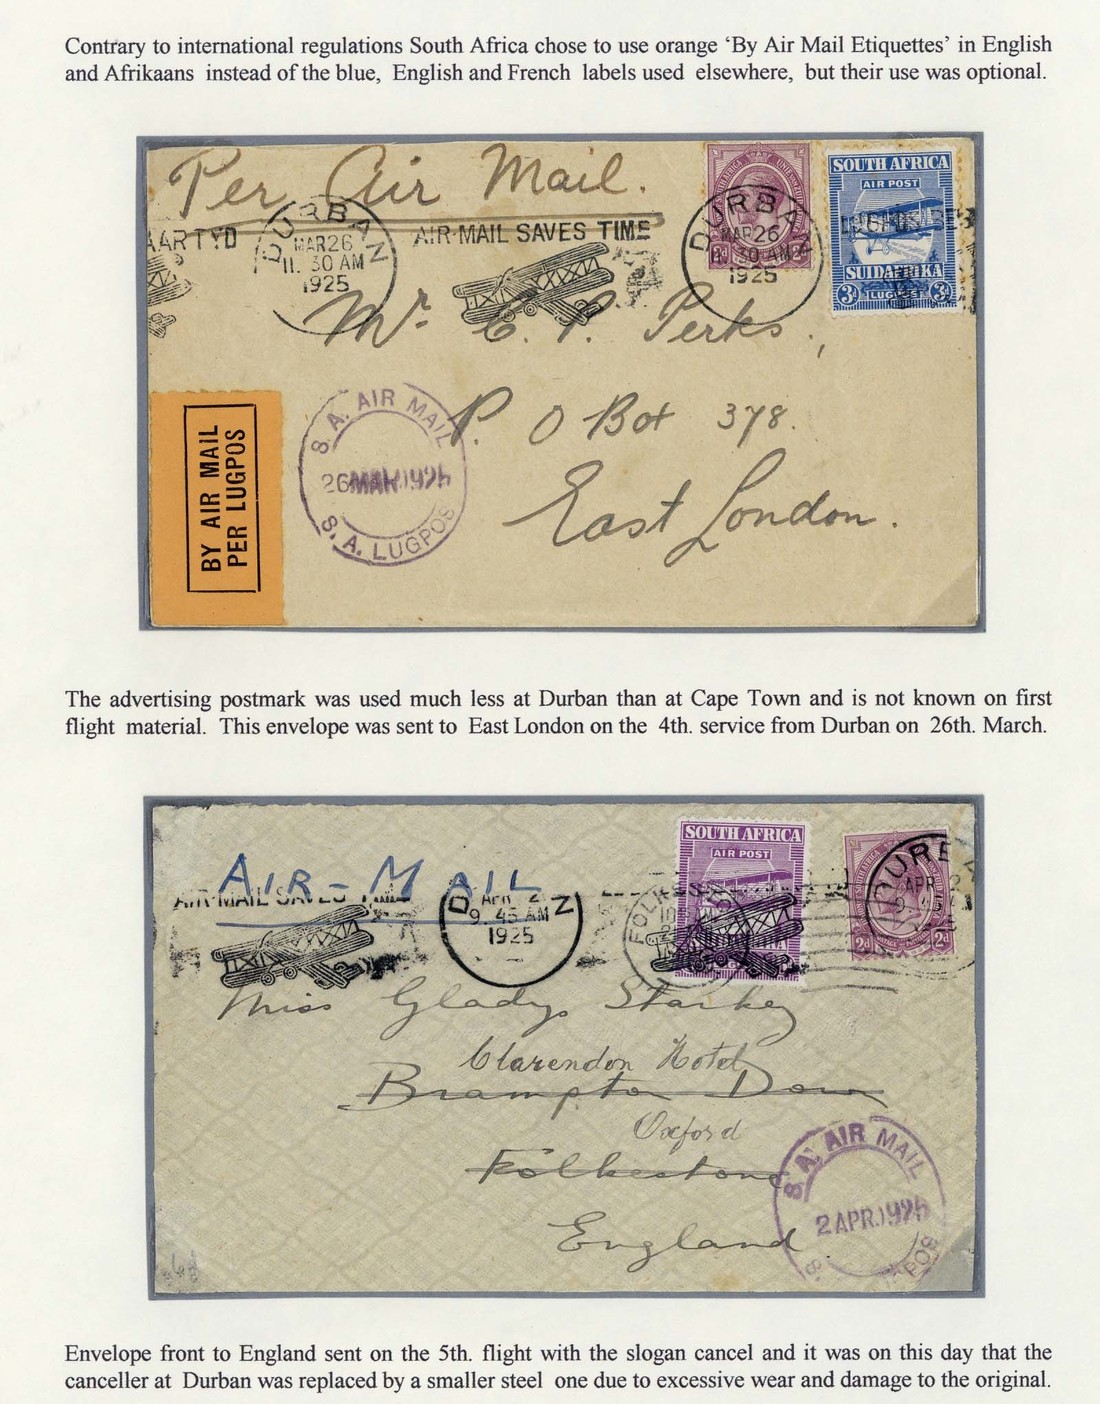 Contrary to international regulations South Africa chose to use orange ‘By Air Mail Etiquettes’ in English
and Afrikaans instead of the blue, English and French labels used elsewhere, but their use was optional.
Per Air Mail.
AARTYD
DURBAN
MAR26
11.30 AM
1925
AIR-MAIL SAVES TIME
DURBAN
MAR26
11.30 AM
1925
2d
SOUTH AFRICA
AIR POST
SUIDAFRIKA
3d LUGPOST 3d
Mr C. P. Perks,
P. O Box 378.
East London.
S.A. AIR MAIL
26 MAR 1925
S.A. LUGPOS
BY AIR MAIL
PER LUGPOS
The advertising postmark was used much less at Durban than at Cape Town and is not known on first
flight material. This envelope was sent to East London on the 4th. service from Durban on 26th. March.
AIR-MAIL
AIR-MAIL SAVES
APR 2
9.45 AM
1925
SOUTH AFRICA
AIR POST
DURBA
APR 2
2d 2d
Miss Gladys Starkey
Clarendon Hotel
Brampton Down
Oxford
Folkestone
England
S.A. AIR MAIL
2 APR. 1925
Envelope front to England sent on the 5th. flight with the slogan cancel and it was on this day that the
canceller at Durban was replaced by a smaller steel one due to excessive wear and damage to the original.